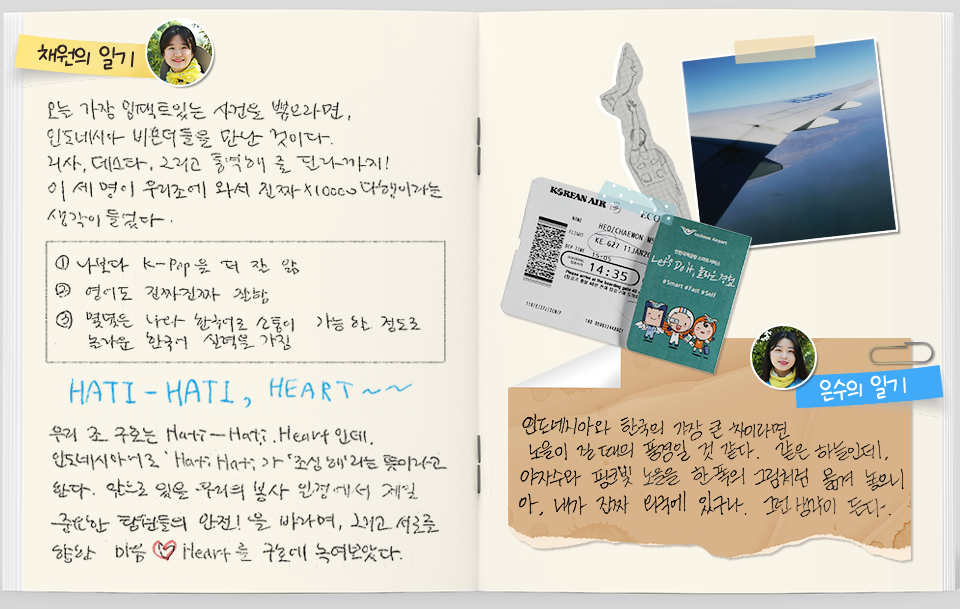 채원의 일기
오늘 가장 임팩트있는 사건을 뽑으라면,
인도네시아 비욘더들을 만난 것이다.
리사, 데스타, 그리고 통역해 줄 딘다까지!
이 세 명이 우리조에 와서 진짜 X10000 다행이라는
생각이 들었다.
① 나보다 K-Pop을 더 잘 앎
② 영어도 진짜진짜 잘함
③ 몇몇은 나랑 한국어로 소통이 가능한 정도로
놀라운 한국어 실력을 가짐
HATI-HATI, HEART~~
우리 조 구호는 Hati-Hati, Heart 인데,
인도네시아어로 'Hati Hati'가 '조심해'라는 뜻이라고
한다. 앞으로 있을 우리의 봉사 일정에서 제일
중요한 단원들의 안전!을 바라며, 그리고 서로를
향한 마음 Heart를 구호에 녹여보았다.
KOREAN AIR
ECO
NAME
HEO/CHAEWON MS
FLIGHT
KE 627 11JAN20
DEP TIME
15:05
14:35
Incheon Airport
인천국제공항 스마트서비스
Let's Do it
#Smart #Fast #Self
은수의 일기
인도네시아와 한국의 가장 큰 차이라면
노을이 질 때의 풍경일 것 같다. 같은 하늘인데,
야자수와 핑크빛 노을을 한 폭의 그림처럼 옮겨 놓으니
아, 내가 진짜 외국에 있구나. 그런 생각이 든다.